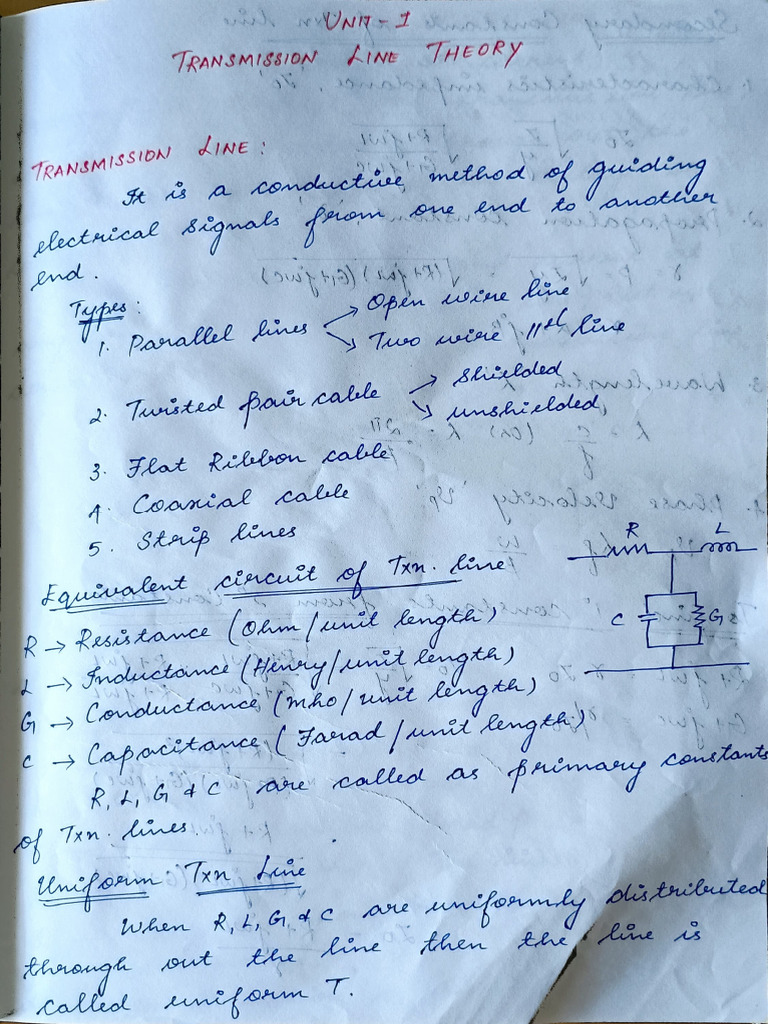 UNIT-I
TRANSMISSION LINE THEORY
TRANSMISSION LINE:
It is a conductive method of guiding
electrical signals from one end to another
end.
Types:
1. Parallel lines → Open wire line
→ Two wire 11th line
2. Twisted pair cable → shielded
→ unshielded
3. Flat Ribbon cable
4. Coaxial cable
5. Strip lines
Equivalent circuit of Txn. line
R L
C G
R → Resistance (Ohm/unit length)
L → Inductance (Henry/unit length)
G → Conductance (mho/unit length)
C → Capacitance (Farad/unit length)
R, L, G & C are called as primary constants
of Txn. lines.
Uniform Txn Line
When R, L, G & C are uniformly distributed
through out the line then the line is
called uniform T.